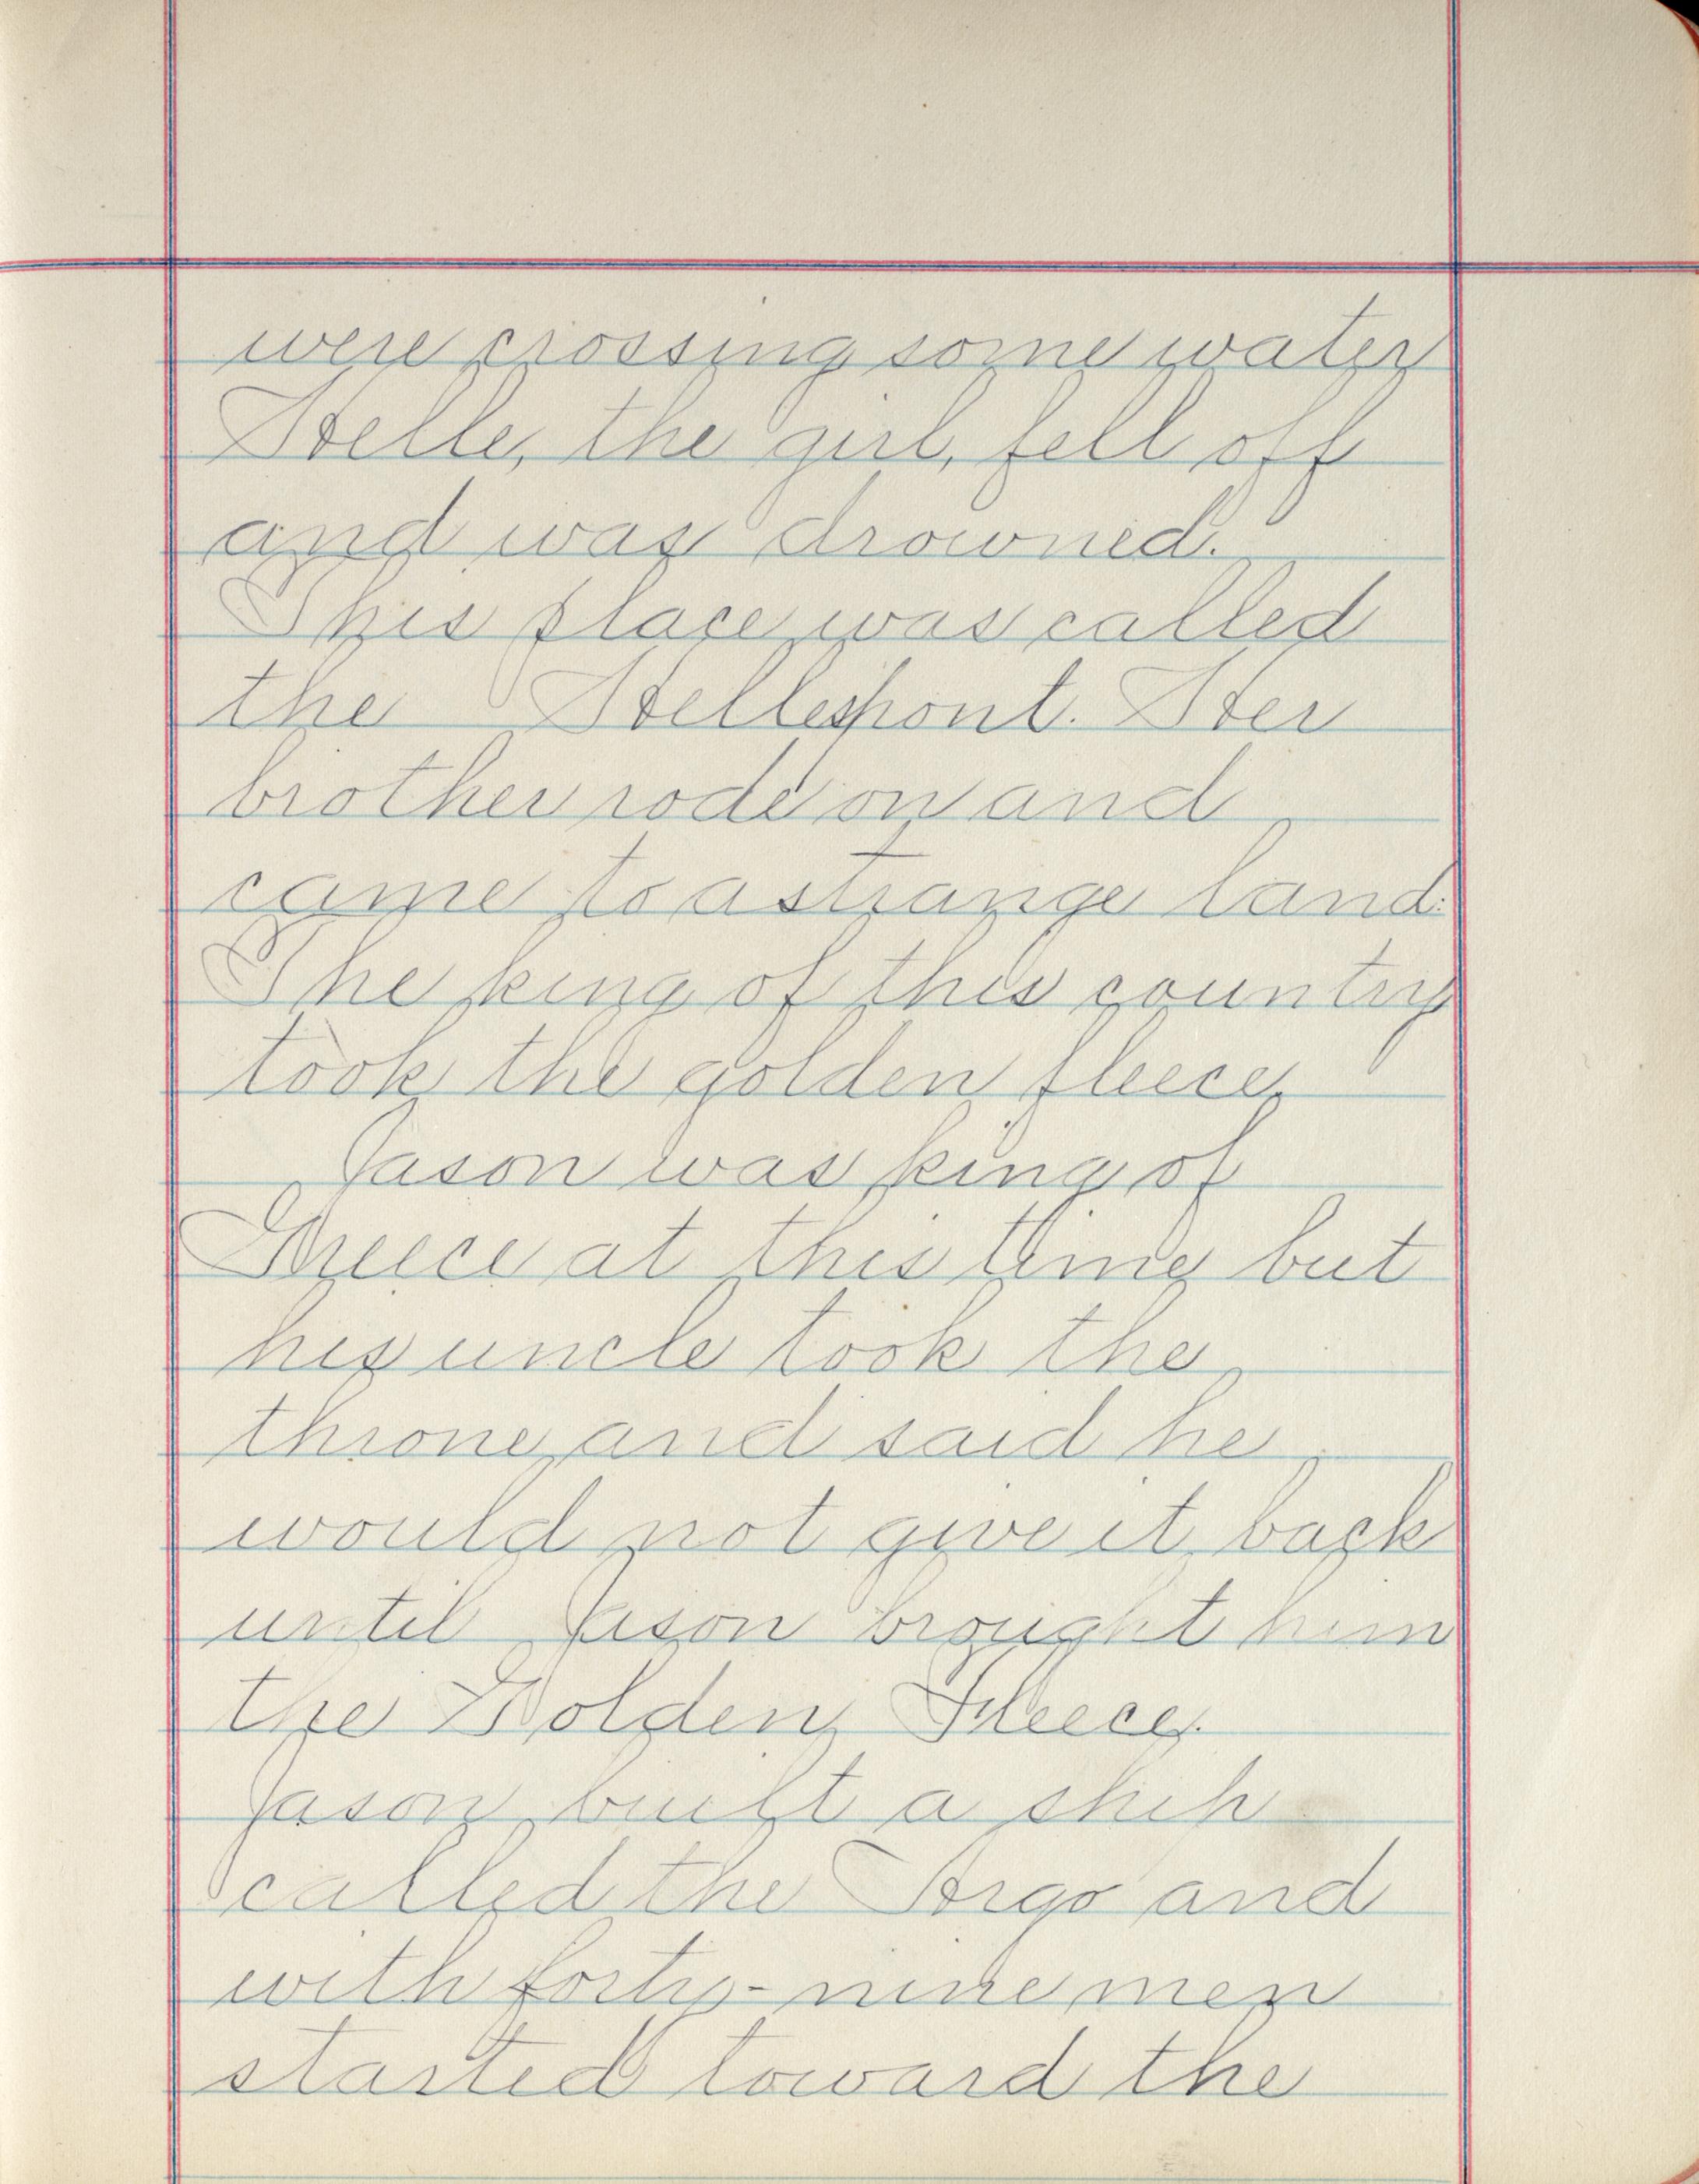 were crossing some water
Helle, the girl, fell off
and was drowned.
This place was called
the Hellespont. Her
brother rode on and
came to a strange land.
The king of this country
took the golden fleece.
Jason was king of
Greece at this time but
his uncle took the
throne and said he
would not give it back
until Jason brought him
the Golden Fleece.
Jason built a ship
called the Argo and
with forty-nine men
started toward the